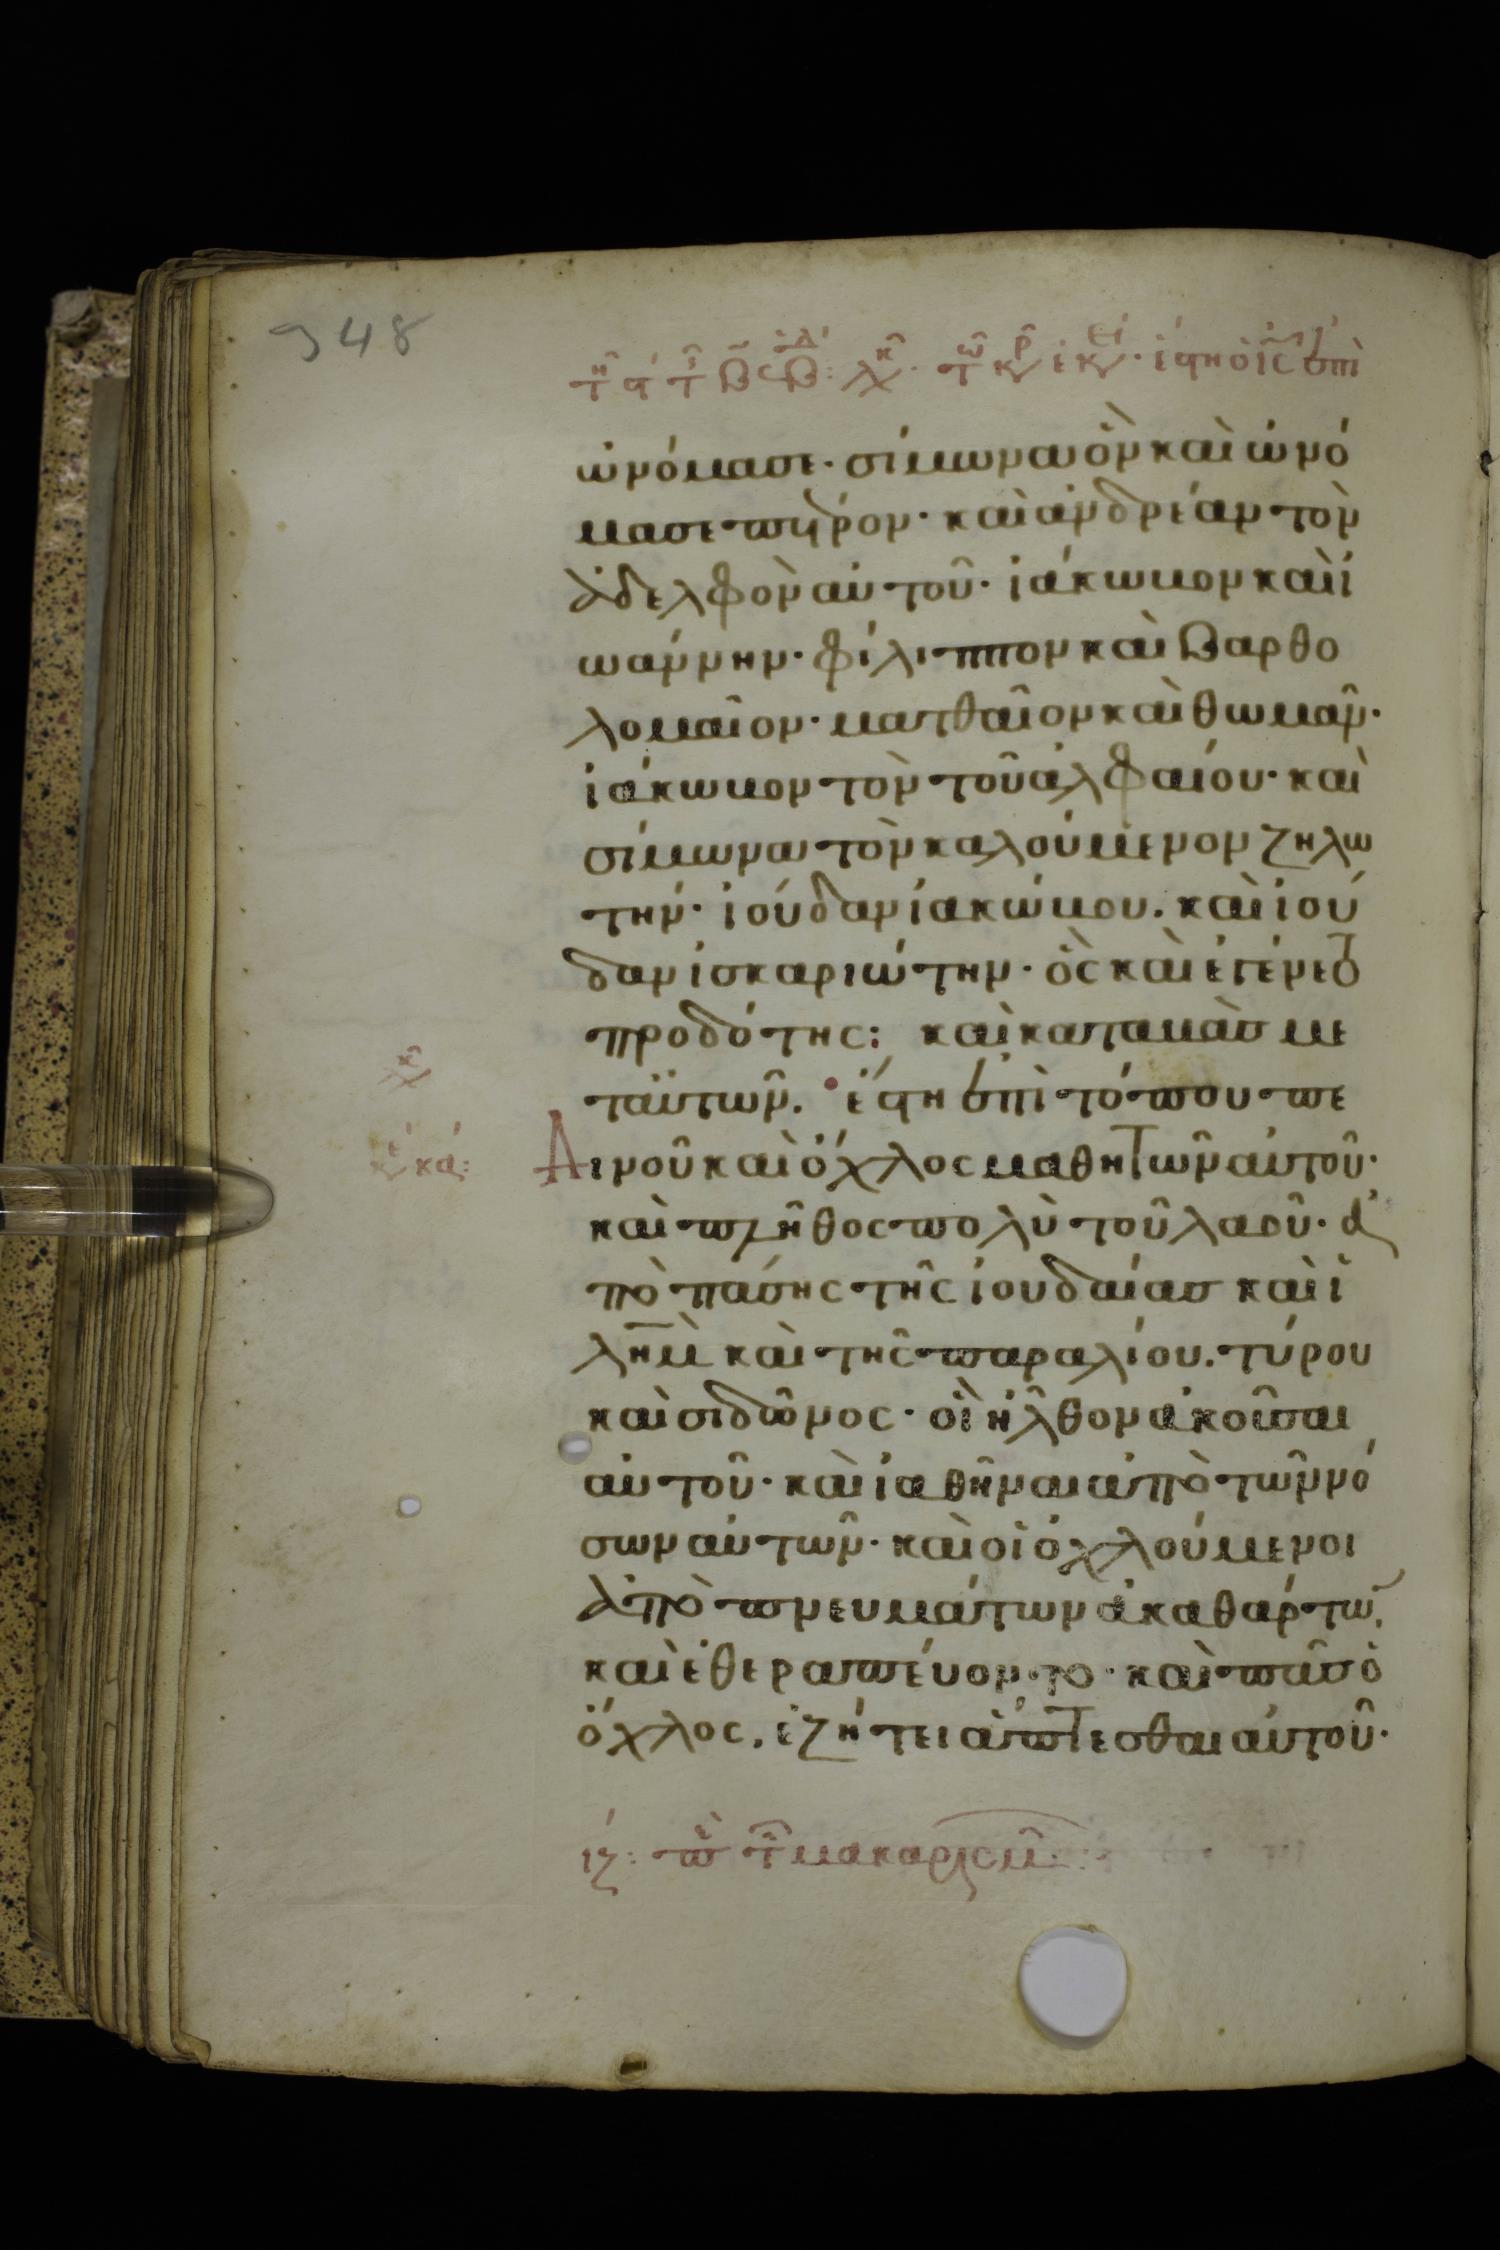 348
ὠνόμασε· σίμωνα ὃν καὶ ὠνό
μασε πέτρον· καὶ ἀνδρέαν τὸν
ἀδελφὸν αὐτοῦ· ἰάκωβον καὶ ἰ
ωάννην· φίλιππον καὶ βαρθο
λομαῖον· ματθαῖον καὶ θωμᾶν·
ἰάκωβον τὸν τοῦ ἀλφαίου· καὶ
σίμωνα τὸν καλούμενον ζηλω
τήν· ἰούδαν ἰακώβου. καὶ ἰού
δαν ἰσκαριώτην· ὃς καὶ ἐγένετο
προδότης: καὶ καταβὰς με
τ' αὐτῶν. ἔστη ἐπὶ τόπου πε
δινοῦ καὶ ὄχλος μαθητῶν αὐτοῦ·
καὶ πλῆθος πολὺ τοῦ λαοῦ· ἀ
πὸ πάσης τῆς ἰουδαίας καὶ ἰ
λημ καὶ τῆς παραλίου. τύρου
καὶ σιδῶνος· οἳ ἦλθον ἀκοῦσαι
αὐτοῦ· καὶ ἰαθῆναι ἀπὸ τῶν νό
σων αὐτῶν· καὶ οἱ ὀχλούμενοι
ἀπὸ πνευμάτων ἀκαθάρτων,
καὶ ἐθεραπεύοντο· καὶ πᾶς ὁ
ὄχλος, ἐζήτει ἅπτεσθαι αὐτοῦ·
ιζ: πε τ μακαρισμ